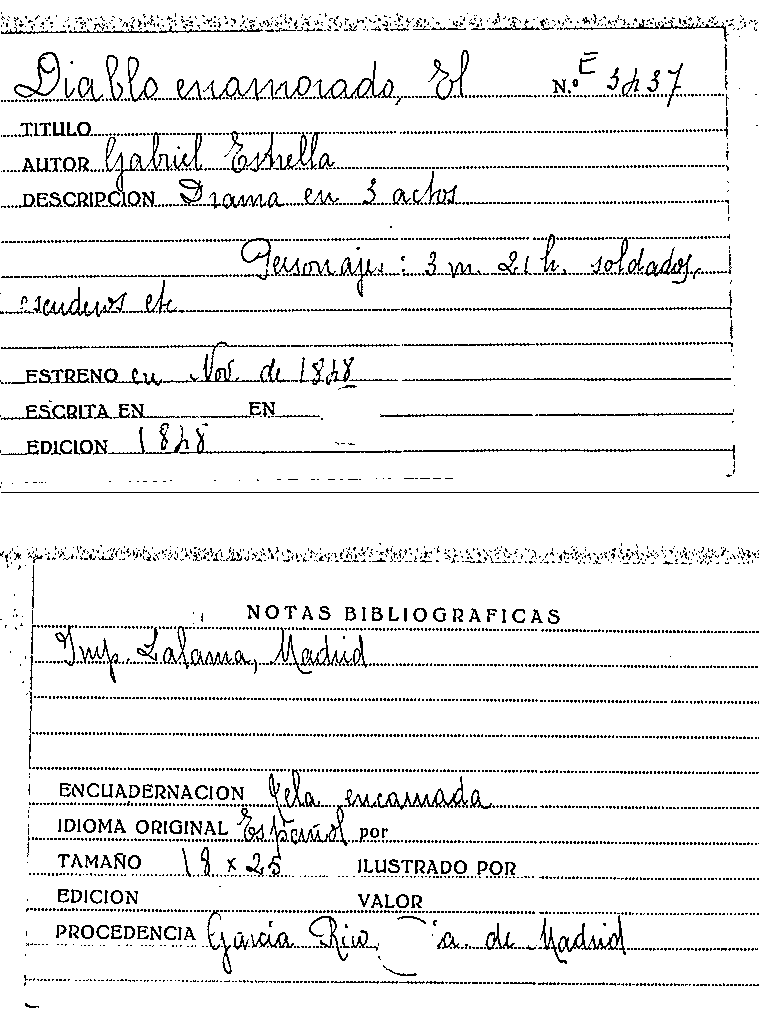 Diablo enamorado, El N.º E 3437
TITULO
AUTOR Gabriel Estrella
DESCRIPCION Drama en 3 actos
Personajes: 3 m. 21 h. soldados,
escuderos etc
ESTRENO en Nov. de 1848
ESCRITA EN EN
EDICION 1848
NOTAS BIBLIOGRAFICAS
Imp. Lalama, Madrid
ENCUADERNACION Tela encarnada
IDIOMA ORIGINAL Español por
TAMAÑO 18 x 25 ILUSTRADO POR
EDICION VALOR
PROCEDENCIA García Rico, a. de Madrid